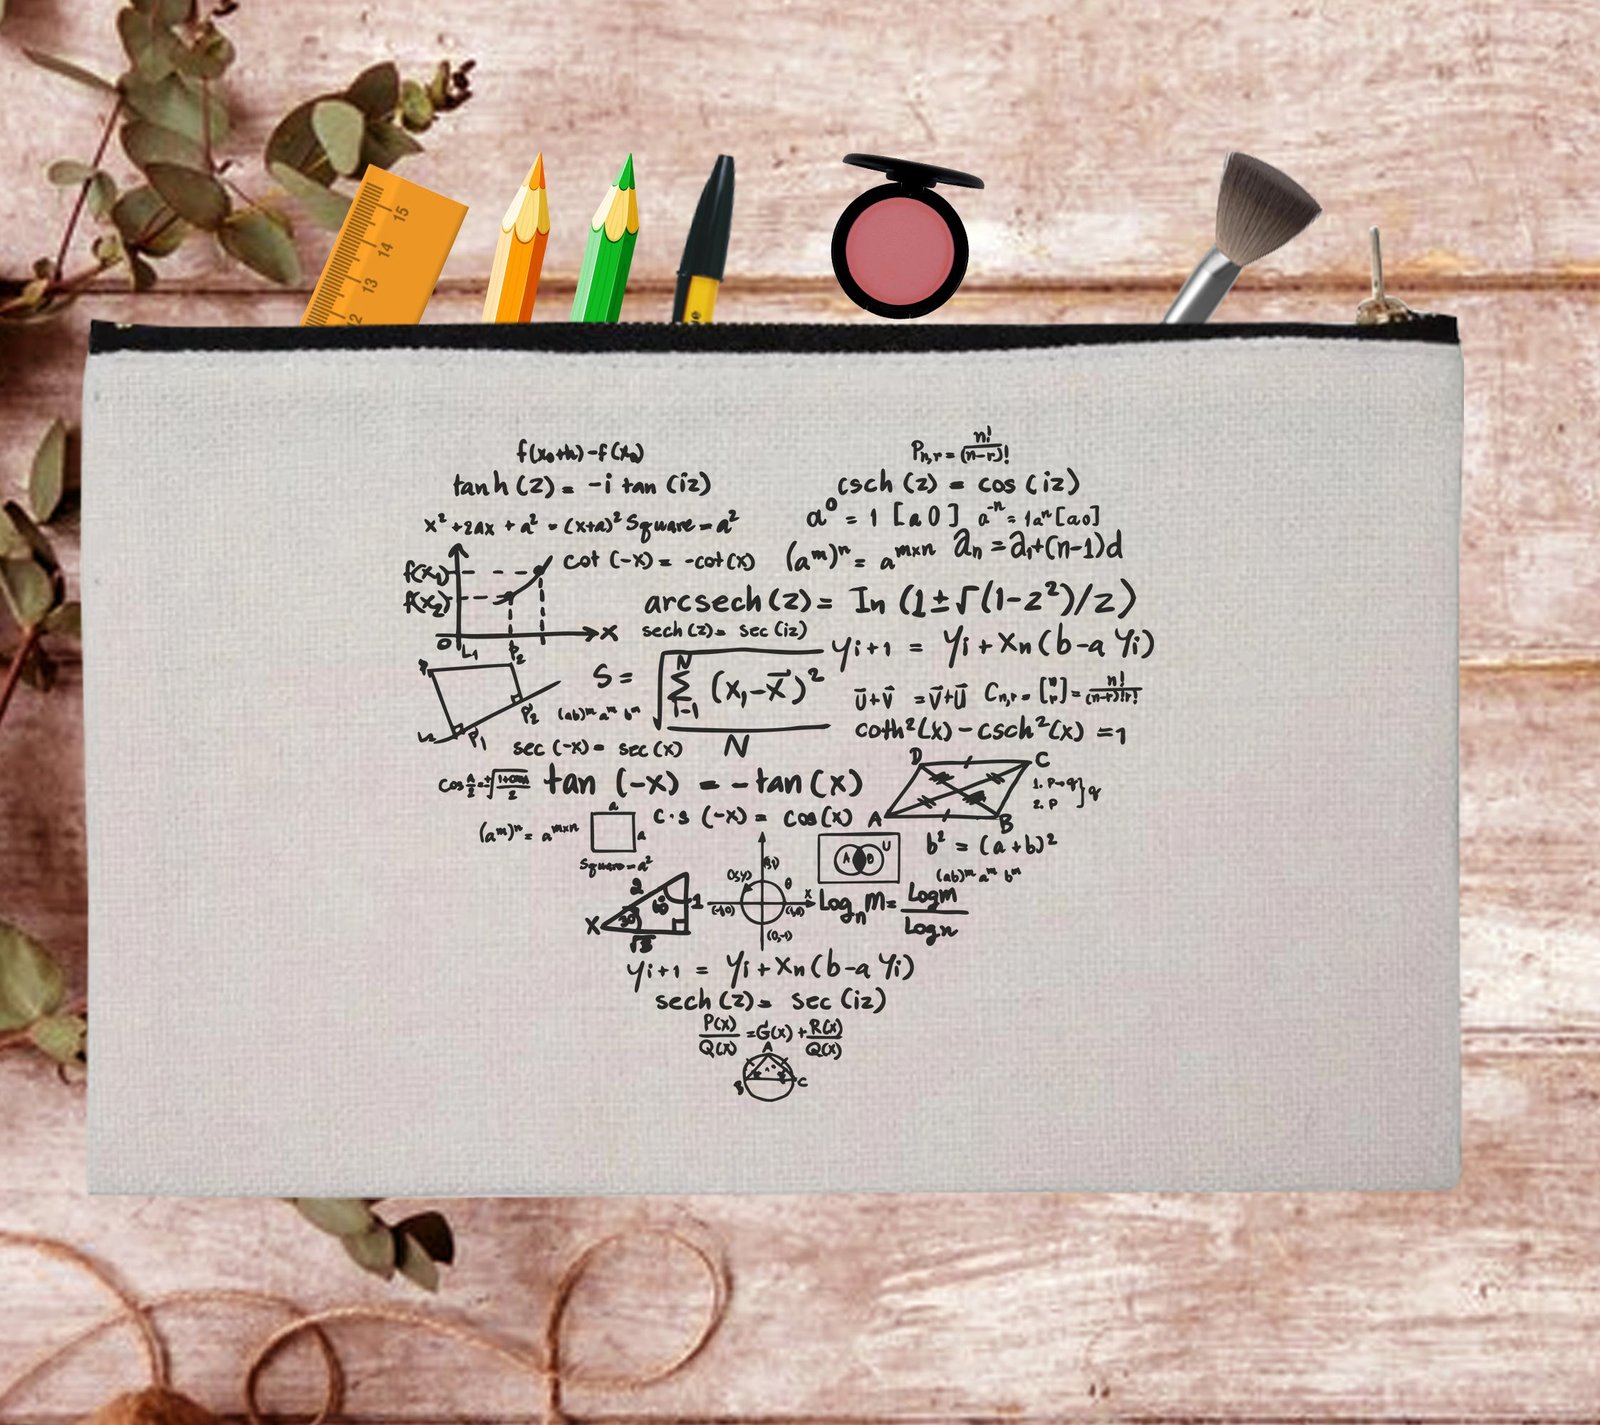 15
14
13
12
f(x₀+h)-f(x₀)
Pn,r = n!/(n-r)!
tanh (z) = -i tan (iz)
csch (z) = cos (iz)
x² + 2ax + a² = (x+a)² Square = a²
a⁰ = 1 [a0] a⁻ⁿ = 1aⁿ [a0]
f(x₁)
cot (-x) = -cot(x)
(aᵐ)ⁿ = aᵐˣⁿ
aₙ = a₁+(n-1)d
f(x₂)
arcsech (z) = In (1±√(1-z²)/z)
0 L₁ P₂ X
sech (z) = sec (iz)
yi+1 = yi + xn (b-a yi)
S = √ N Σ i-1 (x₁-x̄)² N
P P'₂ P₁
(ab)ᵐ aᵐ bᵐ
u⃗+v⃗ = v⃗+u⃗
Cn,r = [n r] = n!/(n-r)!r!
sec (-x) = sec (x)
coth²(x) - csch²(x) = 1
tan (-x) = -tan (x)
D C A B
1. P→q
2. P
} q
(aᵐ)ⁿ = aᵐˣⁿ
a
a
Square = a²
c·s (-x) = cos(x)
A B U
b² = (a+b)²
(ab)ᵐ aᵐ bᵐ
X 2 30° 60° 1 √3
(0,-1)
θ
x
Logn M = Logm/Logn
yi+1 = yi + xn (b-a yi)
sech (z) = sec (iz)
P(x)/Q(x) = G(x) + R(x)/Q(x)
A
B C